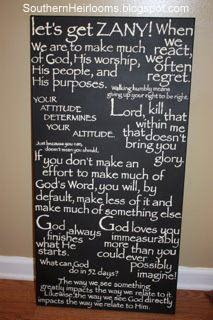 SouthernHeirlooms.blogspot.com
let's get ZANY!
When
we react,
we often
regret.
We are to make much
of God, His worship,
His people, and
His purposes.
Walking humbly means
giving up your right to be right.
YOUR
ATTITUDE
DETERMINES
YOUR
ALTITUDE.
Lord, kill
that
within me
that doesn't
bring you
glory.
Just because you can,
doesn't mean you should.
If you don't make an
effort to make much of
God's Word, you will, by
default, make less of it and
make much of something else
God always
finishes
what He
starts.
God loves you
immeasurably
more than you
could ever
possibly
imagine!
What can God
do in 52 days?
The way we see something
greatly impacts the way we relate to it.
Likewise, the way we see God directly
impacts the way we relate to Him.